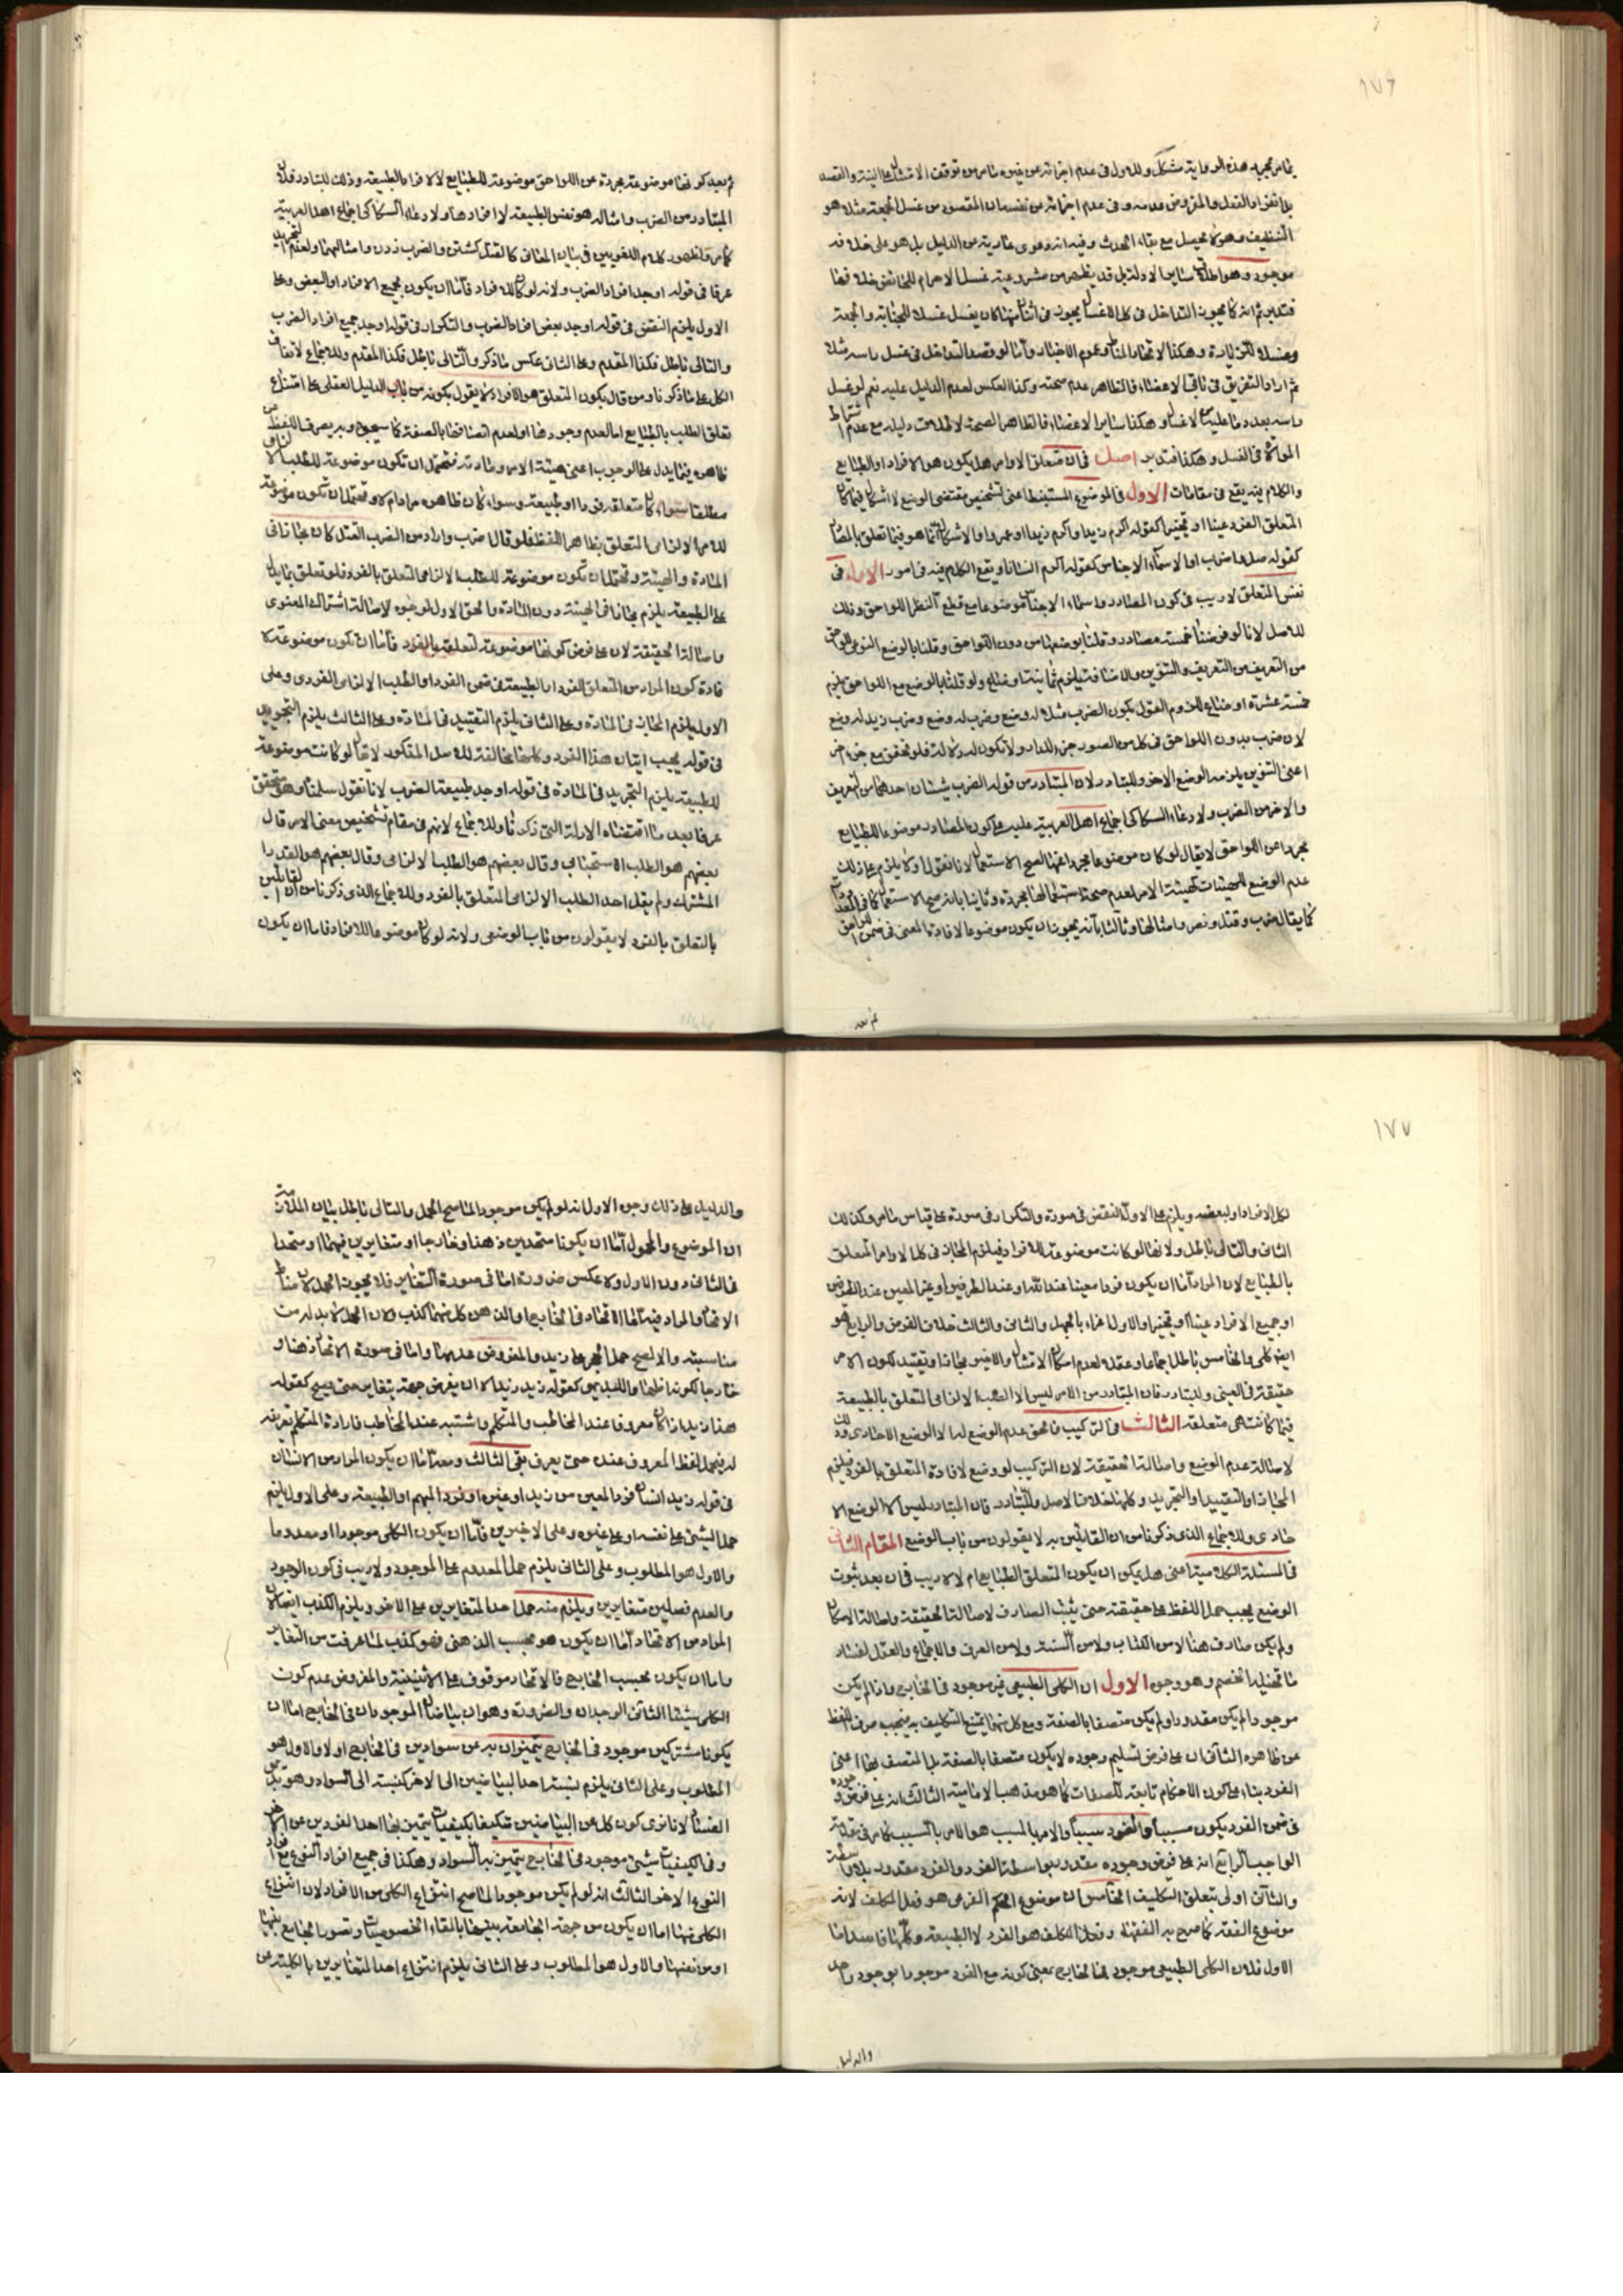 ١٧٦
موجود وهو اطلاق ساير الادلة بل قد يظهر من مشروعية غسل الاحرام للحائض خلافه فضا
ثم اراد التفريق في باقي الاعضاء فالظاهر عدم صحته وكذا العكس لعدم الدليل عليه نعم لو غسل
الموالاة في الغسل وهكذا فتدبر اصل في ان متعلق الاوامر هل يكون هو الافراد او الطبايع
والكلام فيه يقع في مقامات الاول في الموضوع المستنبط اعني تشخيص مقتضى الوضع لا اشكال فيما كان
المتعلق الفرد عينا او تخييرا كقوله اكرم زيدا واكرم زيدا او عمروا والاشكال انما هو فيما تعلق بالمصادر
كقوله صل واضرب او الاسماء الاجناس كقوله اكرم انسانا ويقع الكلام فيه في امور الاول في
نفس المتعلق لا ريب في كون المصادر واسماء الاجناس موضوعا مع قطع النظر اللواحق وذلك
للاصل لانا لو فرضنا خمسة مصادر وقلنا بوضعها من دون اللواحق وقلنا بالوضع النوعي للواحق
من التعريف والتنوين والاضافة فيلزم ثمانية اوضاع ولو قلنا بالوضع مع اللواحق يلزم
خمسة عشرة اوضاع للزوم القول بكون الضرب مثلا له وضع وضرب له وضع وضرب زيد له وضع
لان ضرب بدون اللواحق في كل من الصور جزء للدال ولا تكون له دلالة فلو تحقق مع جزء اخر
اعني التنوين يلزمه الوضع الاخر وللتبادر لان المتبادر من قوله الضرب شيئان احدهما من التعريف
والاخر من الضرب ولادعاء السكاكي اجماع اهل العربية عليه على كون المصادر موضوعا للطبايع
مجردا عن اللواحق لا يقال لو كان موضوعا مجردا عنها لصح الاستعمال لانا نقول اولا لا يلزم على ذلك
عدم الوضع للهيئات كهيئة الامر لعدم صحة استعمالها مجردة وثانيا بانه صح الاستعمال كما في المعدود
كما يقال ضرب وقتل ونصر وامثالها وثالثا بانه يجوز ان يكون موضوعا لافادة المعنى في ضمن اللواحق
ثم بعد
ثم بعد كونها موضوعة مجردة عن اللواحق موضوعة للطبايع لا لافراد الطبيعة وذلك للتبادر فان
المتبادر من الضرب وامثاله هو نفس الطبيعة لا افرادها ولادعاء السكاكي اجماع اهل العربية
كما مر ولظهور كلام اللغويين في بيان المعاني كالقتل كشتن والضرب زدن وامثالهما ولعدم التجريد
عرفا في قوله اوجد افراد الضرب ولانه لو كان للافراد فاما ان يكون لجميع الافراد او البعض وعلى
الاول يلزم النقض في قوله اوجد بعض افراد الضرب والتكرار في قوله اوجد جميع افراد الضرب
والتالي باطل فكذا المقدم وعلى الثاني عكس ما ذكر والتالي باطل فكذا المقدم وللاجماع لاتفاق
الكل على ما ذكرنا ومن قال بكون المتعلق هو الافراد لا يقول بكونه من باب الدليل العقلي على امتناع
تعلق الطلب بالطبايع اما لعدم وجودها او لعدم اتصافها بالصفة كما سيجيء وبه يصرف اللفظ عن
ظاهره فيما يدل على الوجوب اعني هيئة الامر ومادته فتحتمل ان تكون موضوعة للطلب الالزامي
مطلقا سواء كان متعلقه فردا او طبيعة وسواء كان ظاهره مرادا ام لا وتحتمل ان تكون موضوعة
للامر الالزامي المتعلق بظاهر اللفظ فلو قال اضرب واراد من الضرب القتل كان مجازا في
المادة والهيئة وتحتمل ان تكون موضوعة للطلب الالزامي المتعلق بالفرد فلو تعلق بما يدل
على الطبيعة يلزم مجازا في الهيئة دون المادة والحق الاول لوجوه لاصالة اشتراك المعنوي
واصالة الحقيقة لان على فرض كونها موضوعة لتعلقه بالفرد فاما ان تكون موضوعة لا
فادة كون المراد من المتعلق الفرد او الطبيعة في ضمن الفرد او الطلب الالزامي الفردي وعلى
الاول يلزم المجاز في المادة وعلى الثاني يلزم التقييد في المادة وعلى الثالث يلزم التجريد
في قوله يجب اتيان هذا الفرد وكلها مخالفة للاصل المذكور لا يقال لو كانت موضوعة
للطبيعة يلزم التجريد في المادة في قوله اوجد طبيعة الضرب لانا نقول سلمنا وهو متحقق
عرفا بعد ما اقتضاه الادلة التي ذكرنا وللاجماع لانهم في مقام تشخيص معنى الامر قال
بعضهم هو الطلب الاستحبابي وقال بعضهم هو الطلب الالزامي وقال بعضهم هو القدر
المشترك ولم يقل احد الطلب الالزامي المتعلق بالفرد وللاجماع الذي ذكرنا من ان القائلين
بالتعلق بالفرد لا يقولون من باب الوضعي ولانه لو كان موضوعا للافراد فاما ان يكون
١٧٧
لكل الافراد او لبعضه ويلزم على الاول النقض في صورة والتكرار في صورة على قياس ما مر وكذلك
الثاني والتالي باطل ولانها لو كانت موضوعة للافراد فيلزم المجاز في كل الاوامر المتعلق
بالطبايع لان المراد اما ان يكون فردا معينا عند الله او عند الطرفين او غير المعين عند الطرفين
او جميع الافراد عينا او تخييرا والاول اغراء بالجهل والثاني والثالث خلاف الفرض والرابع هو
ايضا كلي والخامس باطل اجماعا وعقلا لعدم امكان الامتثال والاخير مجاز او تقييد لكون الامر
حقيقة في العيني وللتبادر فان المتبادر من الامر ليس الا الطلب الالزامي المتعلق بالطبيعة
فيما كانت هي متعلقه الثالث في التركيب فالحق عدم الوضع له الا الوضع الاحادي وذلك
لاصالة عدم الوضع واصالة الحقيقة لان التركيب لو وضع لافادة المتعلق بالفرد فيلزم
المجاز او التقييد او التجريد وكلها خلاف الاصل وللتبادر فان المتبادر ليس الا الوضع الا
حادي وللاجماع الذي ذكرنا من ان القائلين به لا يقولون من باب الوضع المقام الثاني
في المسئلة الكلامية اعني هل يمكن ان يكون المتعلق الطبايع ام لا لا ريب في ان بعد ثبوت
الوضع يجب حمل اللفظ على حقيقته حتى يثبت الصارف لاصالة الحقيقة واصالة الامكان
ولم يكن صارف هنا لا من الكتاب ولا من السنة ولا من العرف والاجماع والعقل لفساد
ما تخيله الخصم وهو وجوه الاول ان الكلي الطبيعي غير موجود في الخارج واذا لم يكن
موجودا لم يكن مقدورا ولم يكن متصفا بالصفة ومع كل منهما يمتنع التكليف به فيجب صرف اللفظ
عن ظاهره الثاني ان على فرض تسليم وجوده لا يكون متصفا بالصفة بل المتصف بها اعني
الفرد بناء على كون الاحكام تابعة للصفات كما هو مذهب الامامية الثالث انه على فرض وجوده
في ضمن الفرد يكون مسببا والفرد سببا والامر بالمسبب هو الامر بالسبب كما مر في مقدمة
الواجب الرابع انه على فرض وجوده مقدور بواسطة الفرد والفرد مقدور بلا واسطة
والثاني اولى بتعلق التكليف الخامس ان موضوع الحكم الفرعي هو فعل المكلف لانه
موضوع الفقه كما صرح به الفقهاء وفعل المكلف هو الفرد لا الطبيعة وكلها فاسد اما
الاول فلان الكلي الطبيعي موجود في الخارج بمعنى كونه مع الفرد موجودا بوجود واحد
والدليل
والدليل على ذلك وجوه الاول انه لو لم يكن موجودا لما صح الحمل والتالي باطل بيان الملازمة
ان الموضوع والمحمول اما ان يكونا متحدين ذهنا وخارجا او متغايرين فيهما او متحدا
في الثاني دون الاول ولا عكس ضرورة اما في صورة التغاير فلا يجوز الحمل لان مناط
الاتحاد والمراد فيه اما الاتحاد في الخارج او الذهن كل منهما كذب ولان الحمل لا بد له من
مناسبة والا لصح حمل الحجر على زيد والمفروض عدمها واما في صورة الاتحاد ذهنا و
خارجا لكونه اظهارا للبديهي كقوله زيد زيد الا ان يفرض جهة تغاير حتى يصح كقوله
هذا زيد اذا كان معروفا عند المخاطب والمتكلم واشتبه عند المخاطب فارادة المتكلم تعريفه
له فيحمل لفظ المعروف عنده حتى يعرف بقي الثالث ومعه اما ان يكون المراد من الانسان
في قوله زيد انسان فرد المعين من زيد او غيره او فرد المبهم او الطبيعة وعلى الاول يلزم
حمل الشيء على نفسه او على غيره وعلى الاخيرين فاما ان يكون الكلي موجودا او معدوما
والاول هو المطلوب وعلى الثاني يلزم حمل المعدوم على الموجود ولا ريب في كون الوجود
والعدم فصلين متغايرين ويلزم منه حمل احد المتغايرين على الاخر ويلزم الكذب ايضا لان
المراد من الاتحاد اما ان يكون هو بحسب الذهني فهو كذب لما عرفت من التغاير
واما ان يكون بحسب الخارج فالاتحاد موقوف على الاثنينية والمفروض عدم كون
الكلي شيئا الثاني الوجدان والضرورة وهو ان بياضان الموجودان في الخارج اما ان
يكونا مشتركين موجود في الخارج يتميزان به عن سوادين في الخارج او لا والاول هو
المطلوب وعلى الثاني يلزم نسبة احد البياضين الى الاخر كنسبته الى السواد وهو بديهي
الفساد لانا نرى كون كل من البياضين متكيفا بكيفيات يتميز بها احد الفردين عن الاخر
وفي الكيفيات شيء موجود في الخارج يتميز به السواد وهكذا في جميع افراد النوع مع افراد
النوع الاخر الثالث انه لو لم يكن موجودا لما صح انتزاع الكلي من الافراد لان انتزاع
الكلي منها اما ان يكون من جهة الجامعة بينها بالقاء الخصوصيات وتصور الجامع بينها
او من نفسها والاول هو المطلوب وعلى الثاني يلزم انتزاع احد المتغايرين بالكلية من